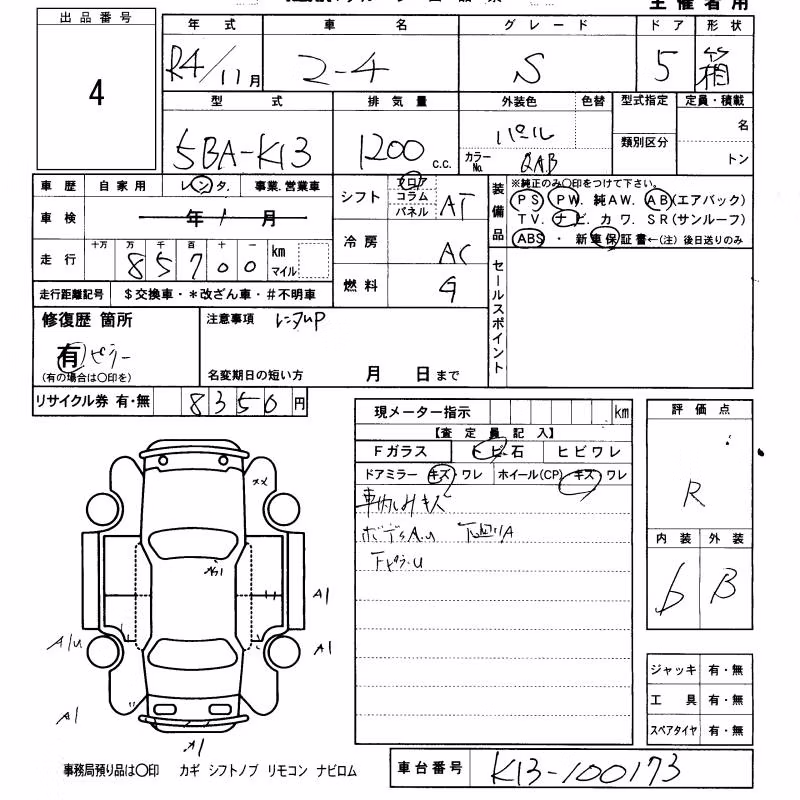 主催者用
出品番号
4
年式 車名 グレード ドア 形状
R4/11月 マーチ S 5 箱
型式 排気量 外装色 色替 型式指定 定員・積載
5BA-K13 1200 c.c. パール 名
類別区分
カラーNo. QAB トン
車歴 自家用 レンタ. 事業.営業車
車検 年 月
走行 十万 万 千 百 十 一
8 5 7 0 0 km マイル
走行距離記号 $交換車・*改ざん車・#不明車
シフト フロア コラム パネル AT
冷房 AC
燃料 G
装備品
※純正のみ〇印をつけて下さい。
PS PW. 純AW. AB(エアバック)
TV. ナビ. カワ. SR(サンルーフ)
ABS ・ 新車保証書←(注) 後日送りのみ
セールスポイント
修復歴 箇所
有 ピラー
(有の場合は〇印を)
注意事項 レンタUP
名変期日の短い方 月 日まで
リサイクル券 有・無 8350円
現メーター指示 km
【査定員記入】
Fガラス トビ石 ヒビワレ
ドアミラー キズ・ワレ ホイール(CP) キズ ワレ
車内シミキズ
ボデーA.U 下廻りA
Fピラ-U
評価点
R
内装 外装
b B
A1
A1
A1U
A1
A1
ジャッキ 有・無
工具 有・無
スペアタイヤ 有・無
事務局預り品は〇印 カギ シフトノブ リモコン ナビロム
車台番号 K13-100173